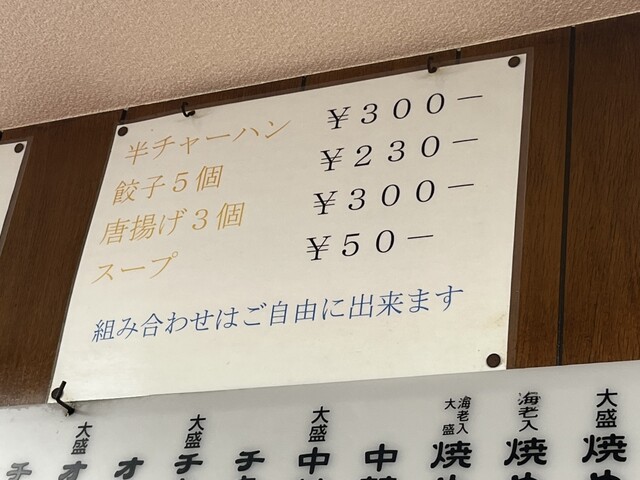 半チャーハン ￥３００－
餃子５個 ￥２３０－
唐揚げ３個 ￥３００－
スープ ￥５０－
組み合わせはご自由に出来ます
大盛
大盛
大盛
海老入
大盛
焼
海老入
焼
大盛
焼